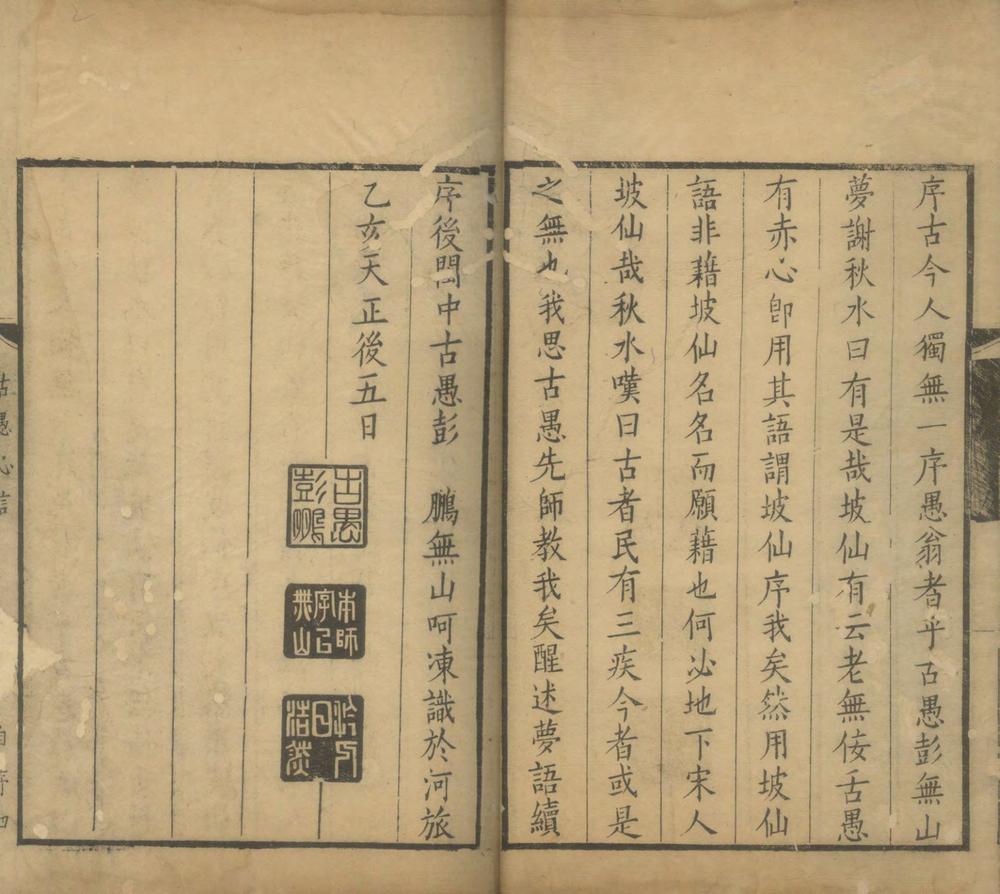 序古今人獨無一序愚翁者乎古愚彭無山
夢謝秋水曰有是哉坡仙有云老無佞舌愚
有赤心卽用其語謂坡仙序我矣然用坡仙
語非藉坡仙名名而願藉也何必地下宋人
坡仙哉秋水嘆曰古者民有三疾今者或是
之無也我思古愚先師教我矣醒述夢語續
序後閩中古愚彭 鵬無山呵凍識於河旅
乙亥天正後五日
古愚
彭鵬
本師
字曰
無山
浩然
古愚心言
自序 四